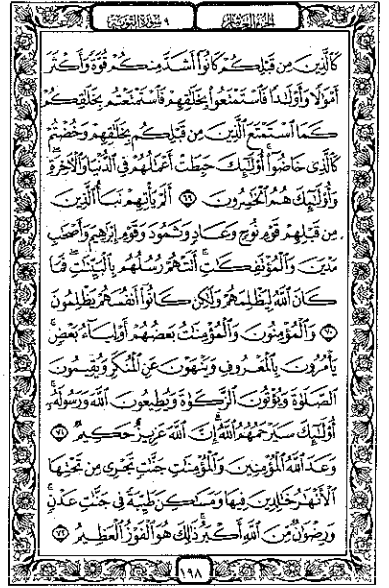 الجزء العاشر ٩ سورة التوبة
كَٱلَّذِينَ مِن قَبۡلِكُمۡ كَانُوٓاْ أَشَدَّ مِنكُمۡ قُوَّةٗ وَأَكۡثَرَ
أَمۡوَٰلٗا وَأَوۡلَٰدٗا فَٱسۡتَمۡتَعُواْ بِخَلَٰقِهِمۡ فَٱسۡتَمۡتَعۡتُم بِخَلَٰقِكُمۡ
كَمَا ٱسۡتَمۡتَعَ ٱلَّذِينَ مِن قَبۡلِكُم بِخَلَٰقِهِمۡ وَخُضۡتُمۡ
كَٱلَّذِي خَاضُوٓاْۚ أُوْلَٰٓئِكَ حَبِطَتۡ أَعۡمَٰلُهُمۡ فِي ٱلدُّنۡيَا وَٱلۡأٓخِرَةِۖ
وَأُوْلَٰٓئِكَ هُمُ ٱلۡخَٰسِرُونَ ٦٩ أَلَمۡ يَأۡتِهِمۡ نَبَأُ ٱلَّذِينَ
مِن قَبۡلِهِمۡ قَوۡمِ نُوحٖ وَعَادٖ وَثَمُودَ وَقَوۡمِ إِبۡرَٰهِيمَ وَأَصۡحَٰبِ
مَدۡيَنَ وَٱلۡمُؤۡتَفِكَٰتِۚ أَتَتۡهُمۡ رُسُلُهُم بِٱلۡبَيِّنَٰتِۖ فَمَا
كَانَ ٱللَّهُ لِيَظۡلِمَهُمۡ وَلَٰكِن كَانُوٓاْ أَنفُسَهُمۡ يَظۡلِمُونَ
٧٠ وَٱلۡمُؤۡمِنُونَ وَٱلۡمُؤۡمِنَٰتُ بَعۡضُهُمۡ أَوۡلِيَآءُ بَعۡضٖۚ
يَأۡمُرُونَ بِٱلۡمَعۡرُوفِ وَيَنۡهَوۡنَ عَنِ ٱلۡمُنكَرِ وَيُقِيمُونَ
ٱلصَّلَوٰةَ وَيُؤۡتُونَ ٱلزَّكَوٰةَ وَيُطِيعُونَ ٱللَّهَ وَرَسُولَهُۥٓۚ
أُوْلَٰٓئِكَ سَيَرۡحَمُهُمُ ٱللَّهُۗ إِنَّ ٱللَّهَ عَزِيزٌ حَكِيمٞ ٧١
وَعَدَ ٱللَّهُ ٱلۡمُؤۡمِنِينَ وَٱلۡمُؤۡمِنَٰتِ جَنَّٰتٖ تَجۡرِي مِن تَحۡتِهَا
ٱلۡأَنۡهَٰرُ خَٰلِدِينَ فِيهَا وَمَسَٰكِنَ طَيِّبَةٗ فِي جَنَّٰتِ عَدۡنٖۚ
وَرِضۡوَٰنٞ مِّنَ ٱللَّهِ أَكۡبَرُۚ ذَٰلِكَ هُوَ ٱلۡفَوۡزُ ٱلۡعَظِيمُ ٧٢
١٩٨